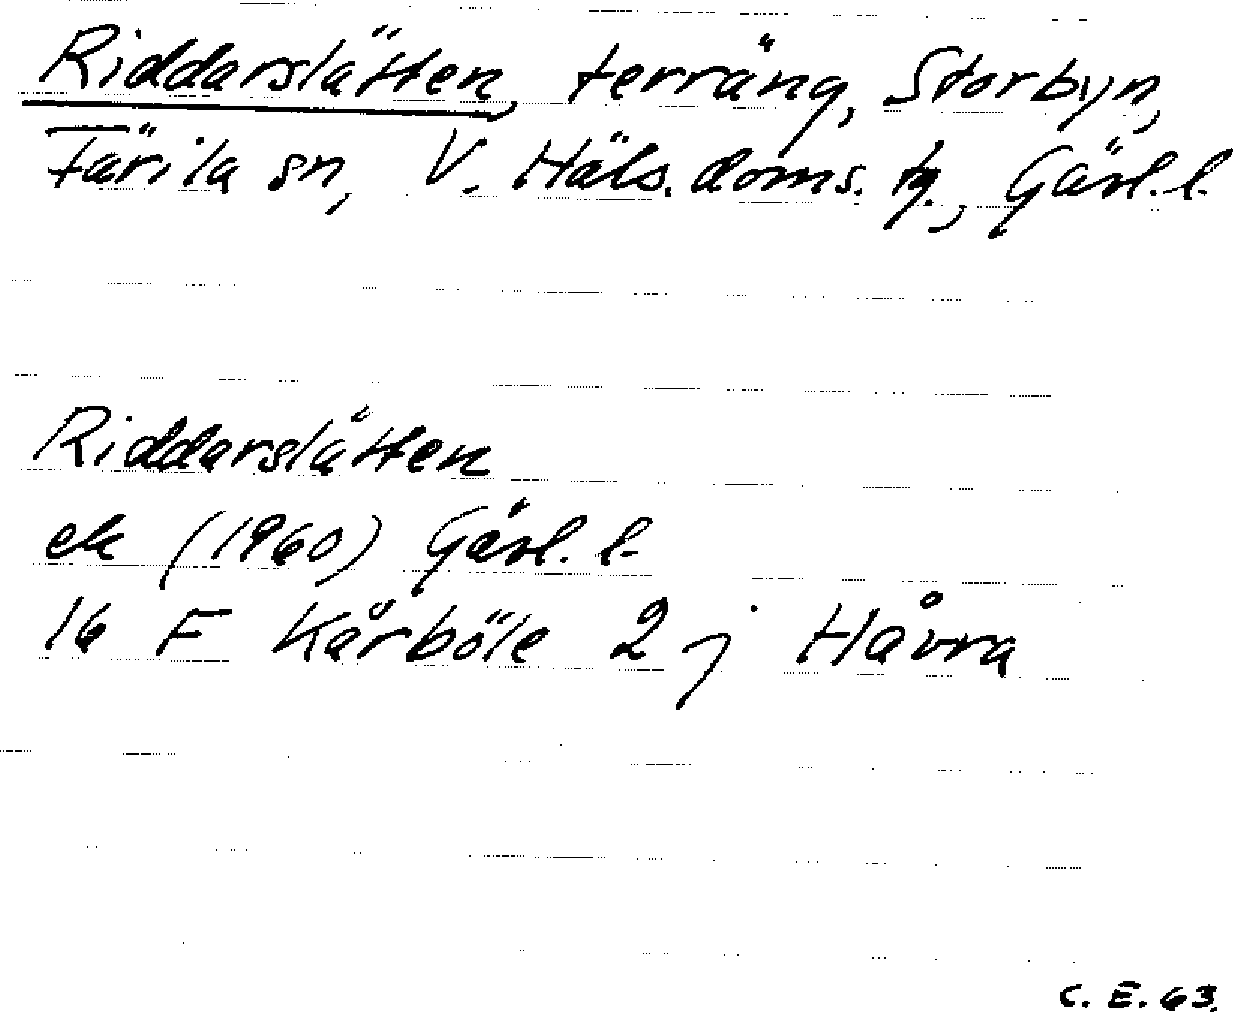 Riddarslätten, terräng, Storbyn,
Färila sn, V. Häls. doms. tg., Gävl. l.
Riddarslätten
ek (1960) Gävl. l.
16 F Kårböle 2 j Håvra
C. E. 63.